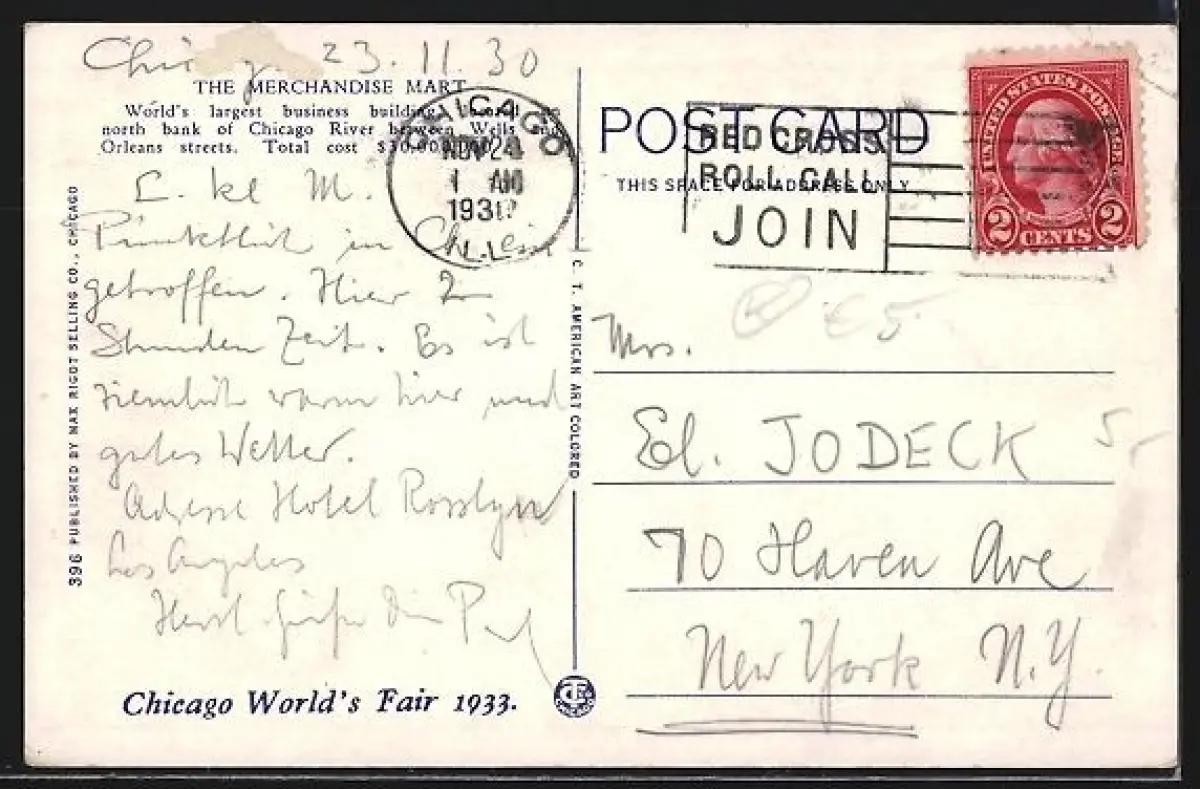 23.11.30
THE MERCHANDISE MART
World's largest business building, located on
north bank of Chicago River between Wells and
Orleans streets. Total cost $30,000,000
L. kl M.
Pünktlich in Ch. ein
getroffen. Hier 2
Stunden Zeit. Es ist
ziemlich warm hier und
gutes Wetter.
Adresse Hotel Rosslyn
Los Angeles
Herzl. Grüße Dein
Chicago World's Fair 1933.
396 PUBLISHED BY MAX RIGOT SELLING CO., CHICAGO
C. T. AMERICAN ART COLORED
CHICAGO
NOV 24
1 AM
193
ILL.
POST CARD
THIS SPACE FOR ADDRESS ONLY
RED CROSS
ROLL CALL
JOIN
UNITED STATES POSTAGE
2 CENTS 2
€5
Mrs.
El. JODECK
5,-
70 Haven Ave
New York N.Y.